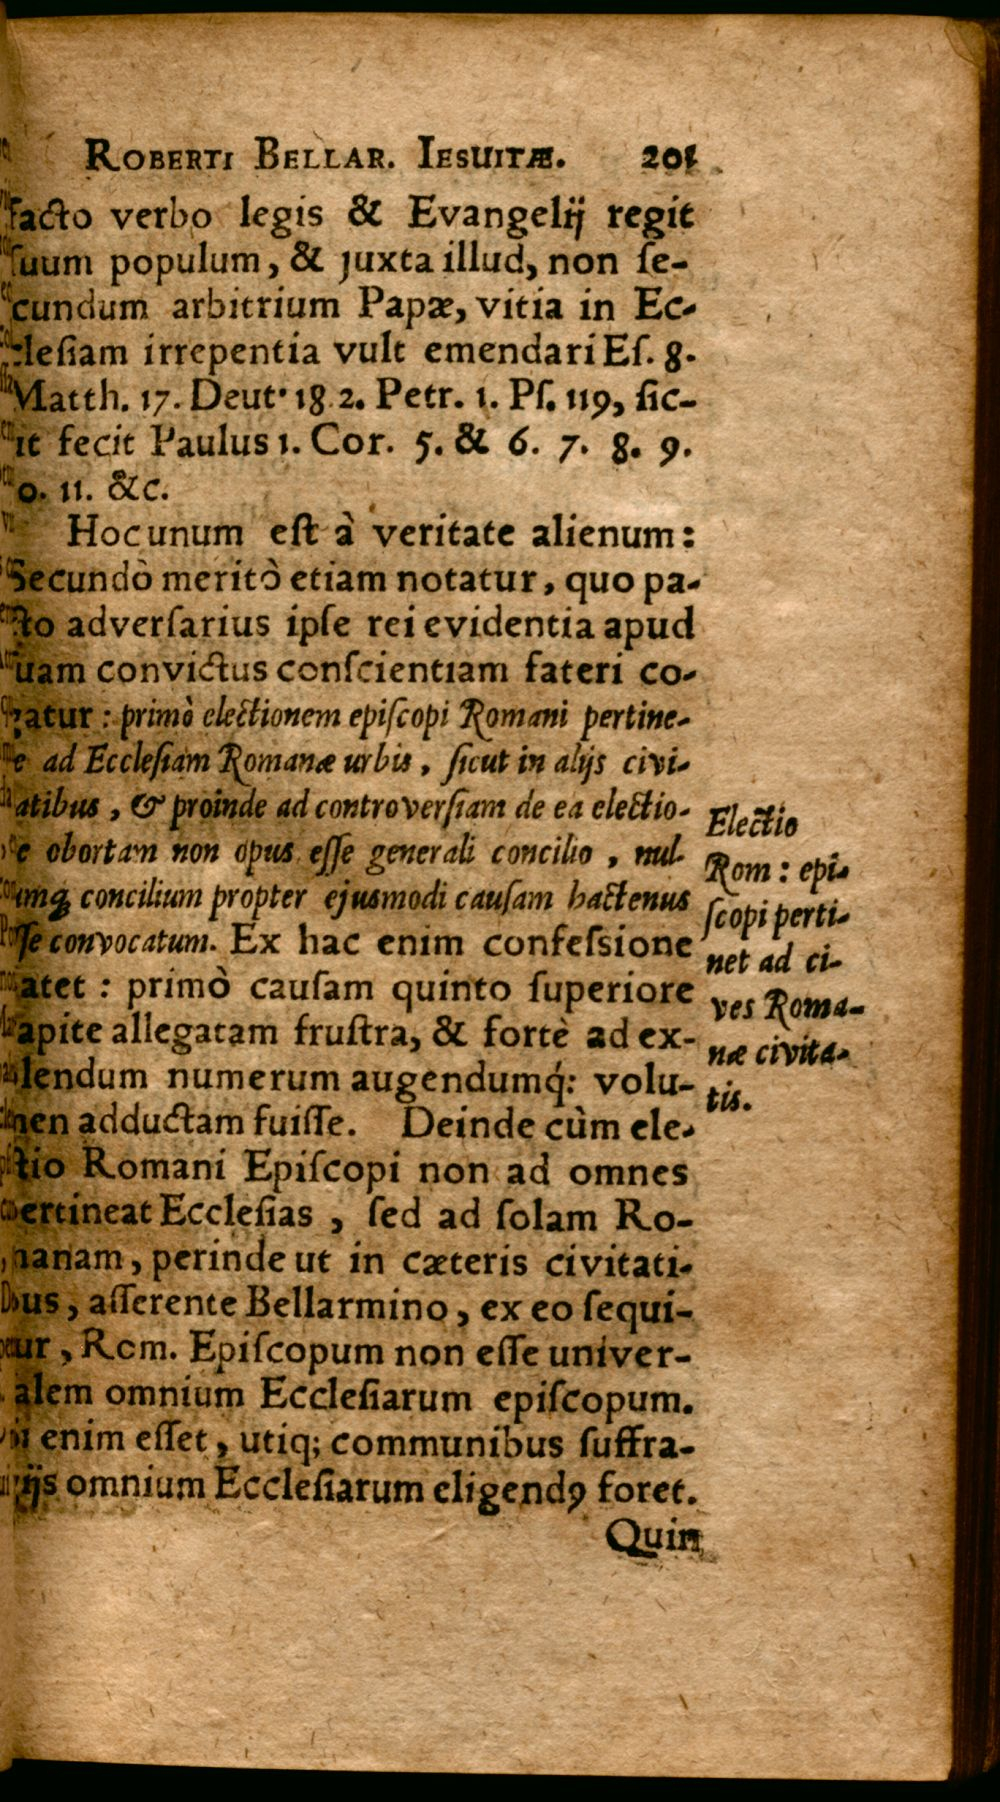 ROBERTI BELLAR. IESUITÆ. 201
facto verbo legis & Evangelij regit
ſuum populum, & juxta illud, non ſe-
cundum arbitrium Papæ, vitia in Ec-
cleſiam irrepentia vult emendari Eſ. 8.
Matth. 17. Deut. 18 2. Petr. 1. Pſ. 119, ſic-
ut fecit Paulus 1. Cor. 5. & 6. 7. 8. 9.
0. 11. &c.
Hoc unum eſt à veritate alienum:
Secundò meritò etiam notatur, quo pa-
cto adverſarius ipſe rei evidentia apud
uam convictus conſcientiam fateri co-
gatur: primò electionem epiſcopi Romani pertine-
e ad Eccleſiam Romanæ urbis, ſicut in alijs civi-
atibus, & proinde ad controverſiam de ea electio-
e obortam non opus eſſe generali concilio, nul-
umq; concilium propter ejusmodi cauſam hactenus
ſſe convocatum. Ex hac enim confeſsione
atet: primò cauſam quinto ſuperiore
apite allegatam fruſtra, & fortè ad ex-
lendum numerum augendumq́; volu-
men adductam fuiſſe. Deinde cùm ele-
ctio Romani Epiſcopi non ad omnes
ertineat Eccleſias, ſed ad ſolam Ro-
manam, perinde ut in cæteris civitati-
bus, aſſerente Bellarmino, ex eo ſequi-
ur, Rom. Epiſcopum non eſſe univer-
alem omnium Eccleſiarum epiſcopum.
i enim eſſet, utiq; communibus ſuffra-
gijs omnium Eccleſiarum eligendꝰ foret.
Quin
Electio
Rom: epi-
ſcopi perti-
net ad ci-
ves Roma-
næ civita-
tis.